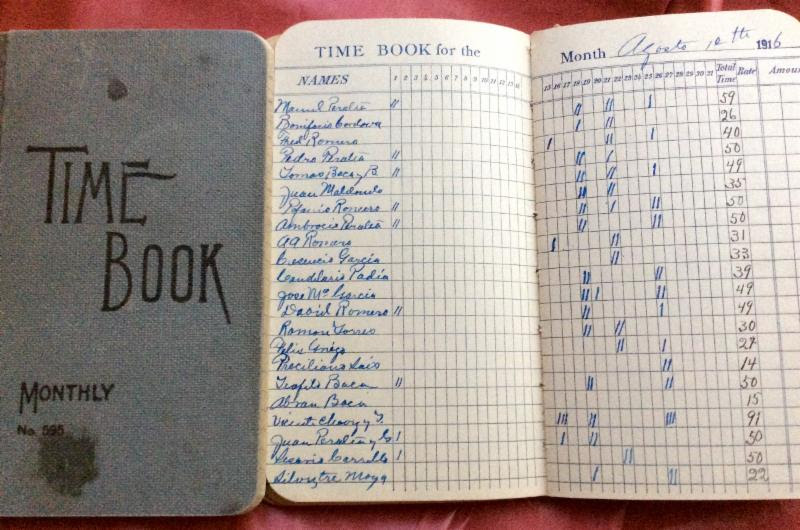 TIME
BOOK
MONTHLY
No. 595
TIME BOOK for the
NAMES 1 2 3 4 5 6 7 8 9 10 11 12 13 14
Manuel Peralta
Bonifacio Cordova
Fred Romero
Pedro Peralta
Tomas Baca y B.
Juan Maldonado
Ambrocio Peralta
Garcia
Candelario Padia
Jose Ma Garcia
David Romero
Ramon Torres
Felix
Teofilo Baca
Abran Baca
Vicente Chavez y
Juan Peralta y G
Carrillo
Silvestre Moya
Month Agosto 12th 1916
15 16 17 18 19 20 21 22 23 24 25 26 27 28 29 30 31 Total Time Rate Amoun
59
26
40
50
49
35
50
50
31
33
39
49
49
30
27
14
50
15
91
50
50
22